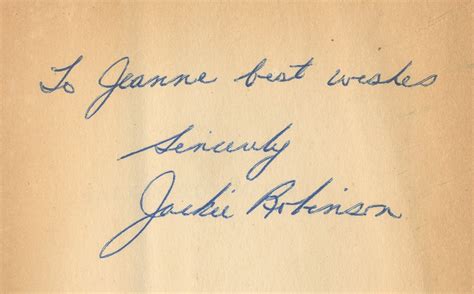 To Jeanne best wishes
Sincerely
Jackie Robinson